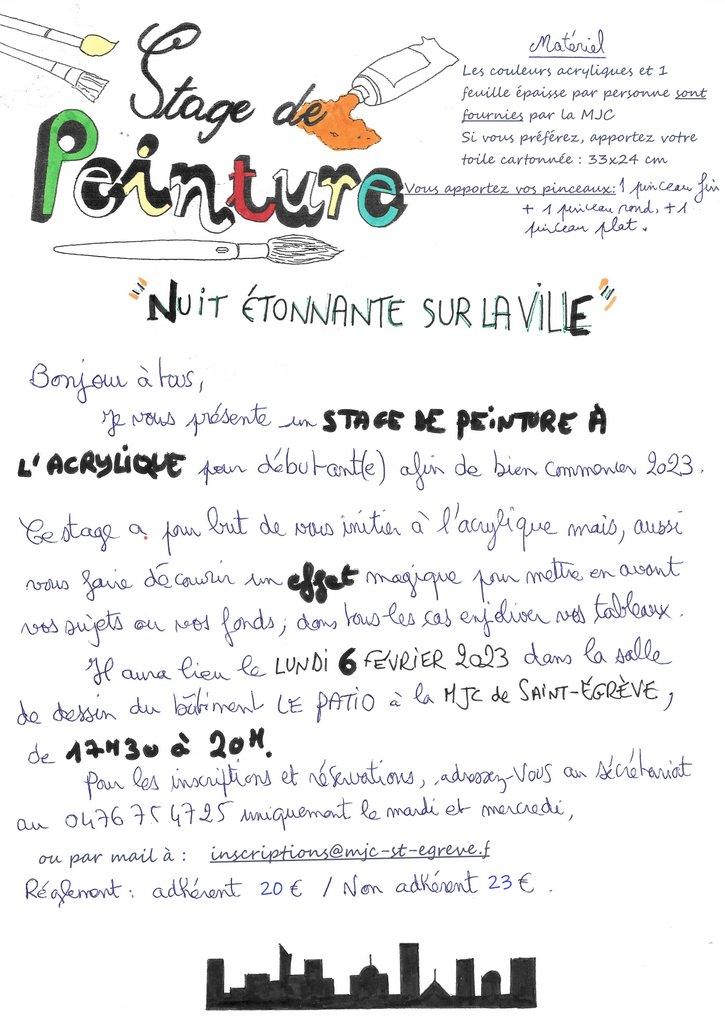 Stage de
Peinture
Matériel
Les couleurs acryliques et 1
feuille épaisse par personne sont
fournies par la MJC
Si vous préférez, apportez votre
toile cartonnée : 33x24 cm
Vous apportez vos pinceaux: 1 pinceau fin
+ 1 pinceau rond, + 1
pinceau plat.
"NUIT ÉTONNANTE SUR LA VILLE"
Bonjour à tous,
Je vous présente un STAGE DE PEINTURE À
L'ACRYLIQUE pour débutant(e) afin de bien commencer 2023.
Ce stage a pour but de vous initier à l'acrylique mais, aussi
vous faire découvrir un effet magique pour mettre en avant
vos sujets ou vos fonds, dans tous les cas enjoliver vos tableaux.
Il aura lieu le LUNDI 6 FÉVRIER 2023 dans la salle
de dessin du bâtiment LE PATIO à la MJC de SAINT-ÉGRÈVE,
de 17H30 à 20H.
Pour les inscriptions et réservations, adressez-vous au sécrétariat
au 0476 75 47 25 uniquement le mardi et mercredi,
ou par mail à : inscriptions@mjc-st-egreve.f
Réglement : adhérent 20 € / Non adhérent 23 €.